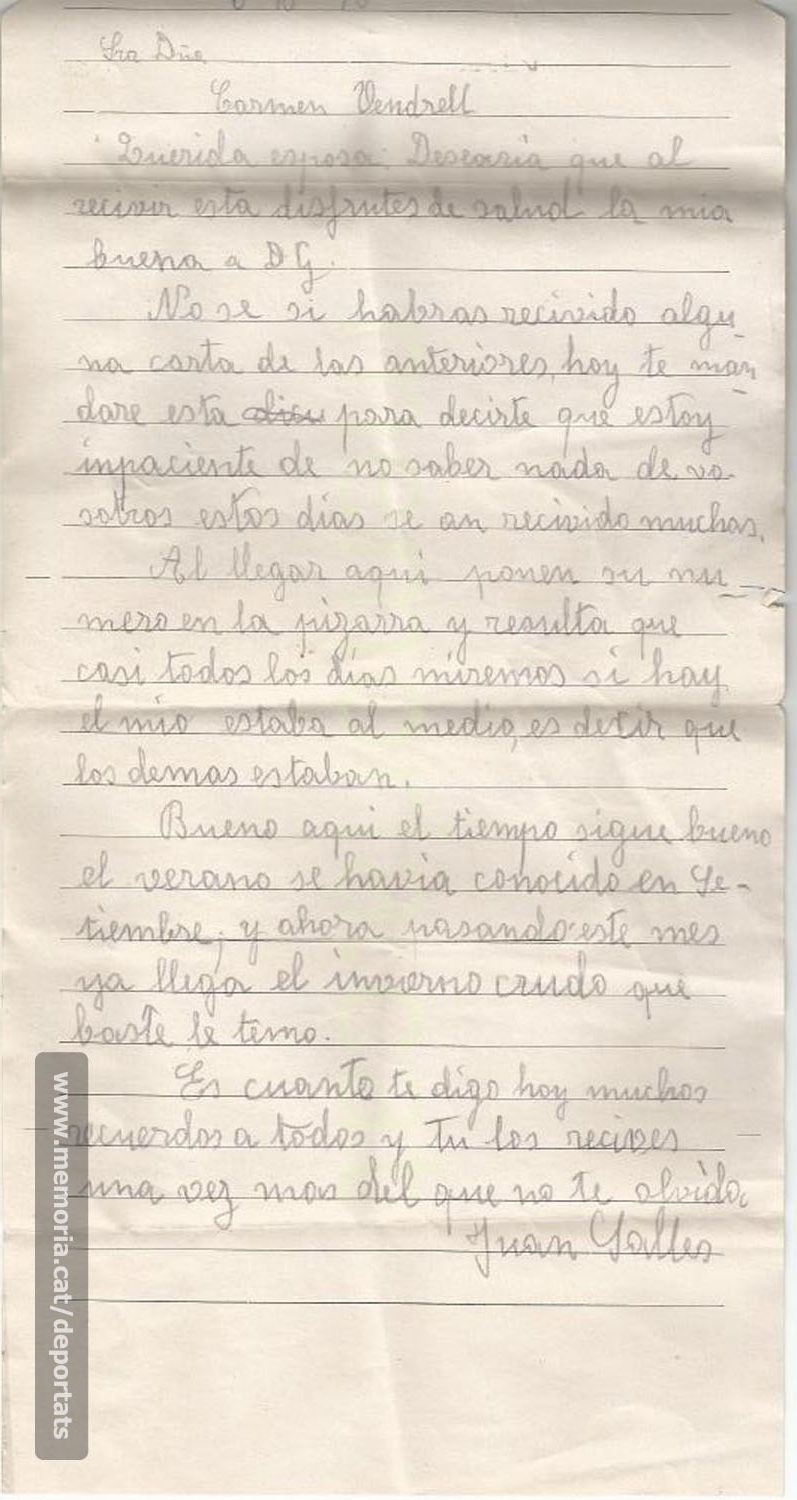 Sra Dña
Carmen Vendrell
Querida esposa: Desearia que al
recivir esta disfrutes de salud la mia
buena a D G.
No se si habras recivido algu_
na carta de las anteriores, hoy te man_
dare esta para decirte que estoy
inpaciente de no saber nada de vo-
sotros estos días se an recivido muchas.
Al llegar aqui ponen su nu_
mero en la pizarra y resulta que
casi todos los días miremos si hay
el mio estaba al medio, es decir que
los demas estaban.
Bueno aqui el tiempo sigue bueno
el verano se havia conocido en Se-
tiembre; y ahora pasando este mes
ya llega el invierno crudo que
baste le temo.
Es cuanto te digo hoy muchos
recuerdos a todos y tu los recives
una vez mas del que no te olvida
Juan Salles
www.memoria.cat/deportats